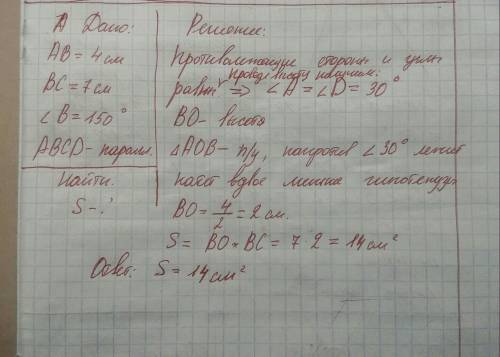 Дано:
AB = 4 см
BC = 7 см
∠B = 150°
ABCD - парал.
Найти:
S - ?
Решение:
Противолежащие стороны и углы
проведя высоту получим:
равны ⇒ ∠A = ∠D = 30°
BO - высота
△AOB - п/у, напротив ∠30° лежит
катет вдвое меньше гипотенузы
BO = 4/2 = 2 см.
S = BO · BC = 7 · 2 = 14 см²
Ответ: S = 14 см²